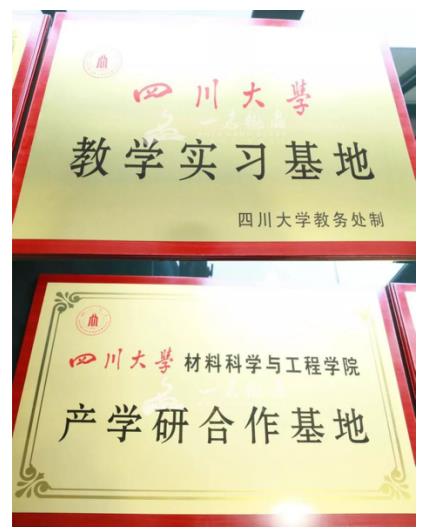 四川大學
教学实习基地
四川大学教务处制
四川大學 材料科学与工程学院
产学研合作基地